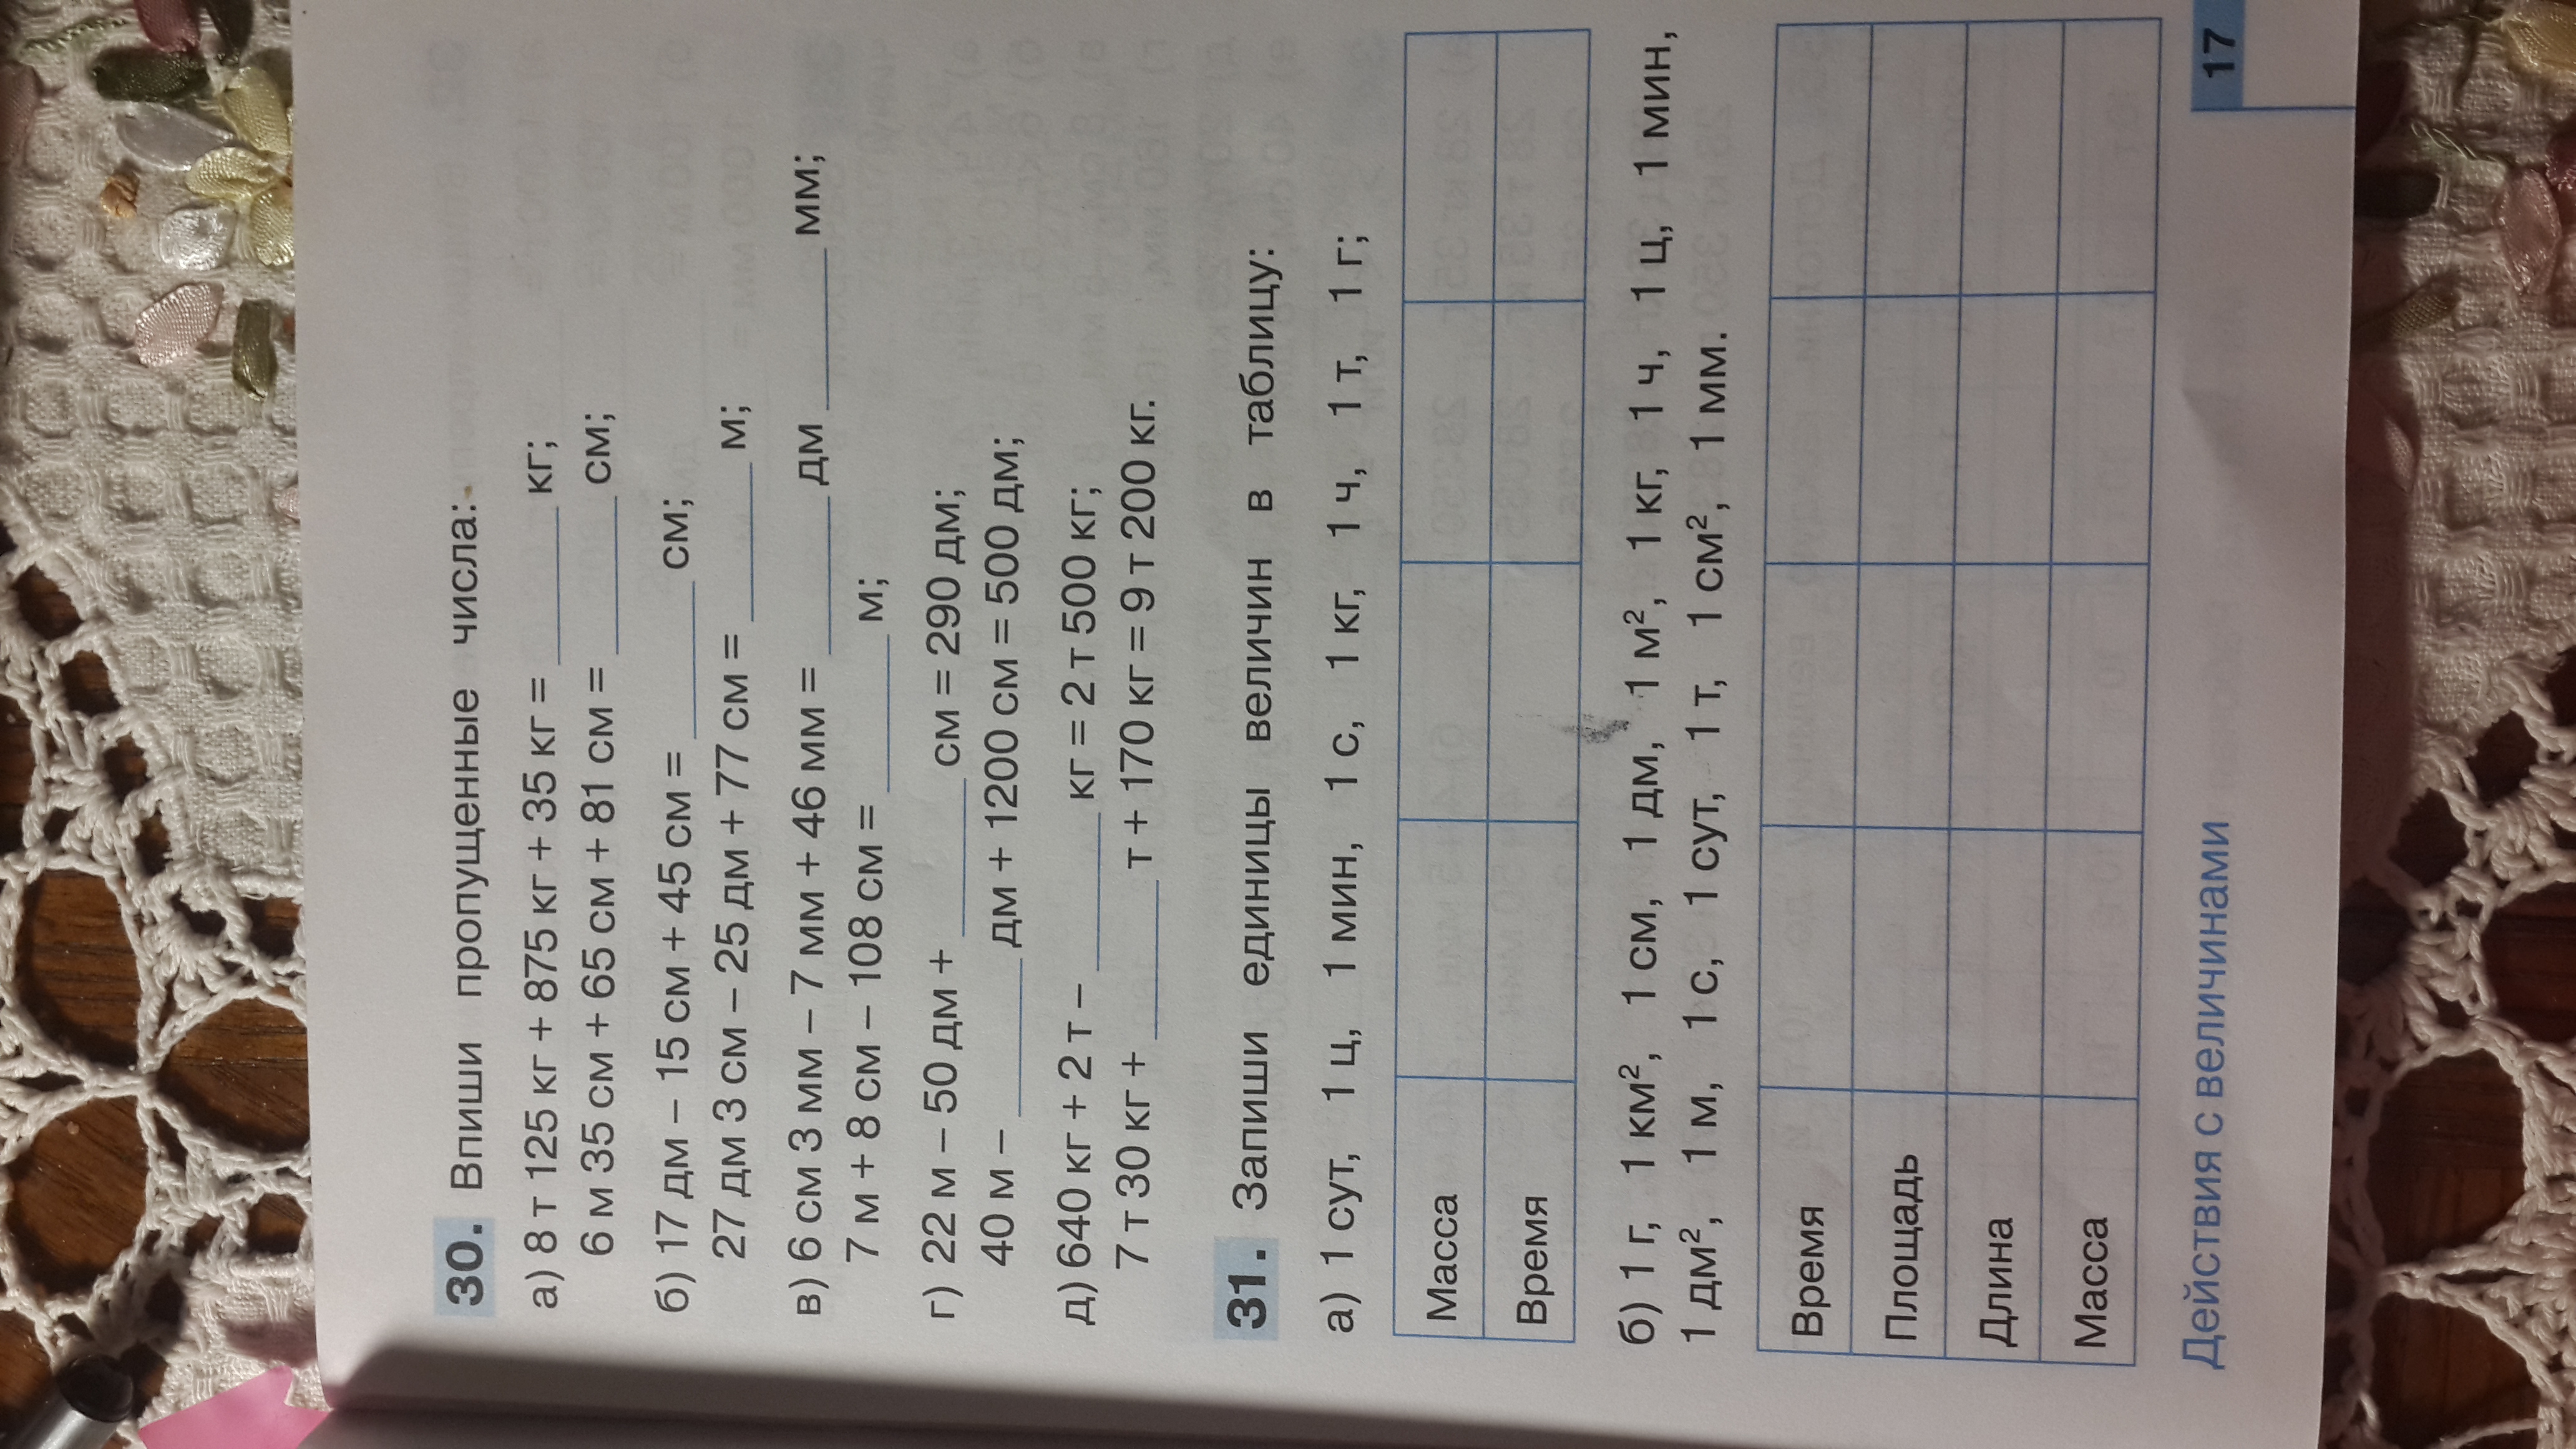 30. Впиши пропущенные числа:
а) 8 т 125 кг + 875 кг + 35 кг = ______ кг;
6 м 35 см + 65 см + 81 см = ______ см;
б) 17 дм − 15 см + 45 см = ______ см;
27 дм 3 см − 25 дм + 77 см = ______ м;
в) 6 см 3 мм − 7 мм + 46 мм = ______ дм ______ мм;
7 м + 8 см − 108 см = ______ м;
г) 22 м − 50 дм + ______ см = 290 дм;
40 м − ______ дм + 1200 см = 500 дм;
д) 640 кг + 2 т − ______ кг = 2 т 500 кг;
7 т 30 кг + ______ т + 170 кг = 9 т 200 кг.
31. Запиши единицы величин в таблицу:
а) 1 сут, 1 ц, 1 мин, 1 с, 1 кг, 1 ч, 1 т, 1 г;
Масса
Время
б) 1 г, 1 км², 1 см, 1 дм, 1 м², 1 кг, 1 ч, 1 ц, 1 мин,
1 дм², 1 м, 1 с, 1 сут, 1 т, 1 см², 1 мм.
Время
Площадь
Длина
Масса
Действия с величинами 17